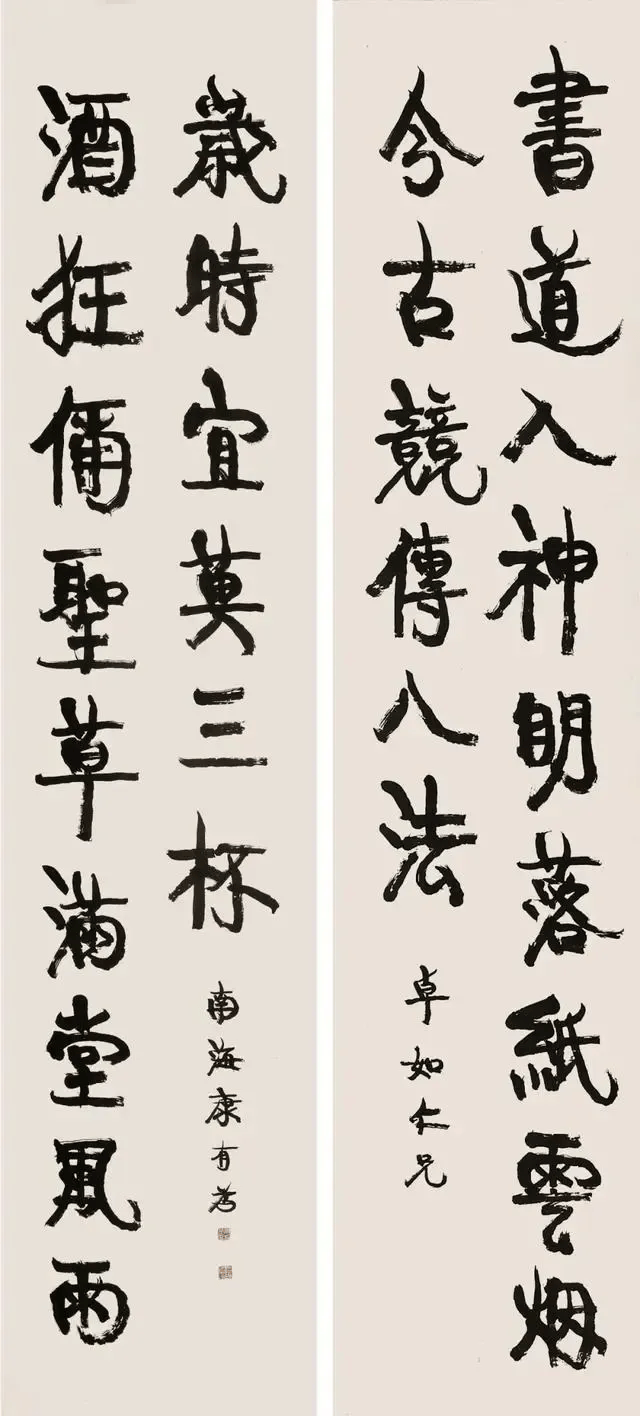 書道入神明落紙雲烟
今古競傳八法
卓如仁兄
酒狂偁聖草滿堂風雨
歲時宜莫三杯
南海康有為